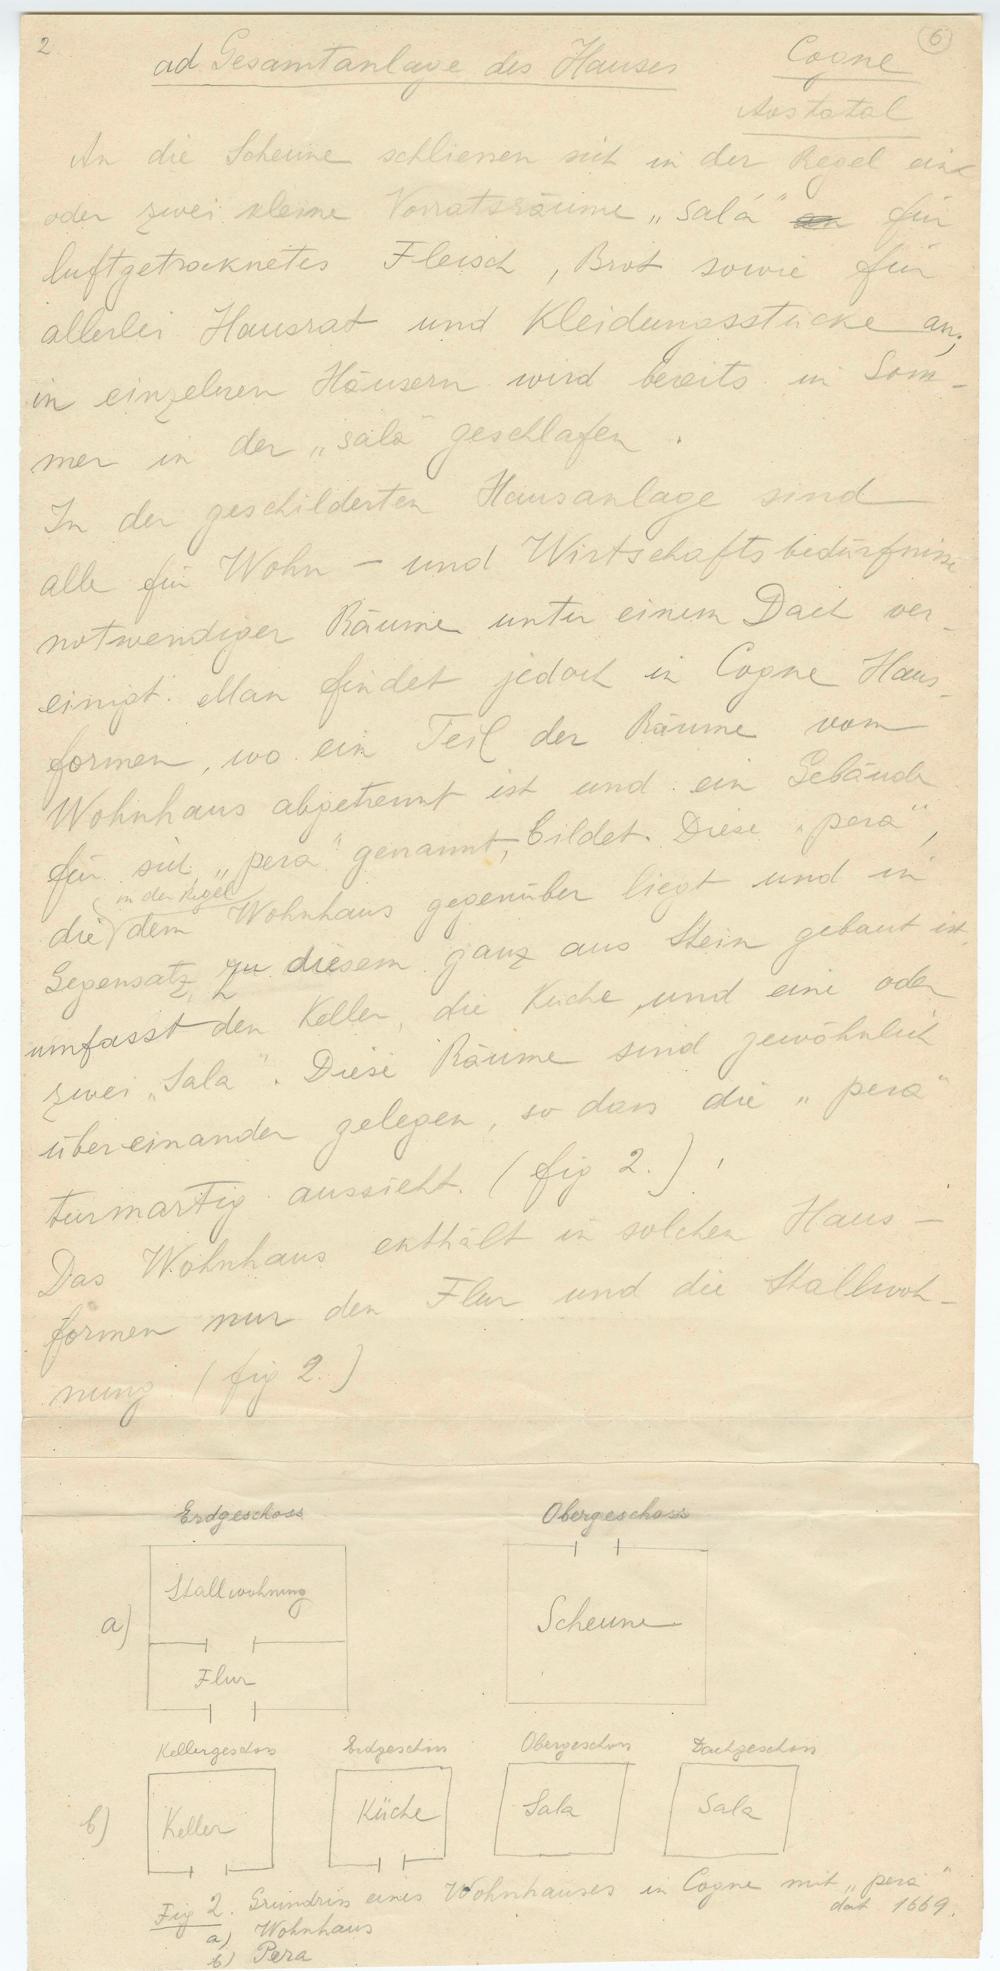 2
6
ad Gesamtanlage des Hauses Cogne
Aostatal
An die Scheune schliessen sich in der Regel eine
oder zwei kleine Vorratsräume „salá" für
luftgetrocknetes Fleisch, Brot sowie für
allerlei Hausrat und Kleidungsstücke an;
in einzelnen Häusern wird bereits in Som-
mer in der „sala" geschlafen.
In der geschilderten Hausanlage sind
alle für Wohn- und Wirtschaftsbedürfnisse
notwendiger Räume unter einem Dach ver-
einigt. Man findet jedoch in Cogne Haus-
formen, wo ein Teil der Räume vom
Wohnhaus abgetrennt ist und ein Gebäude
für sich, „pera" genannt, bildet. Diese „pera",
in der Regel
die dem Wohnhaus gegenüber liegt und in
Gegensatz zu diesem ganz aus Stein gebaut ist,
umfasst den Keller, die Küche und eine oder
zwei „Sala". Diese Räume sind gewöhnlich
übereinander gelegen, so dass die „pera"
turmartig aussieht. (fig 2.)
Das Wohnhaus enthält in solchen Haus-
formen nur den Flur und die Stallwoh-
nung (fig 2.)
Erdgeschoss Obergeschoss
a) Stallwohnung Scheune
Flur
Kellergeschoss Erdgeschoss Obergeschoss Dachgeschoss
b) Keller Küche Sala Sala
Fig 2. Grundriss eines Wohnhauses in Cogne mit „pera"
dat 1669.
a) Wohnhaus
b) Pera